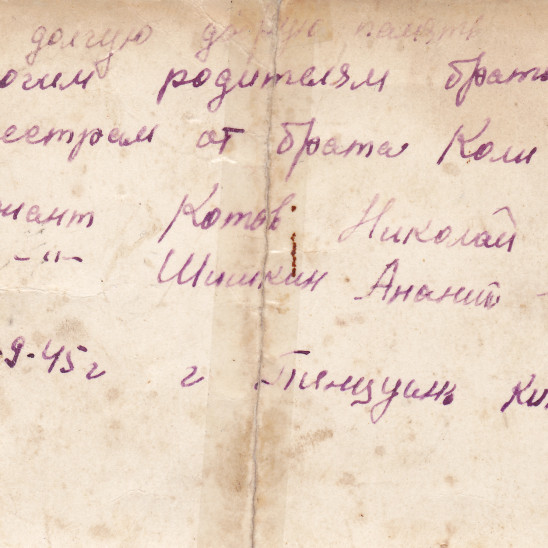 долгую дарую память
огим родителям брата
естрам от брата Коли
жант Котов Николай
-"- Шишкин Ананий
-9-45г г Пинцуань Ки